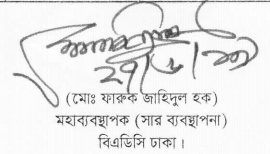 (মোঃ ফারুক জাহিদুল হক)
মহাব্যবস্থাপক (সার ব্যবস্থাপনা)
বিএডিসি ঢাকা।